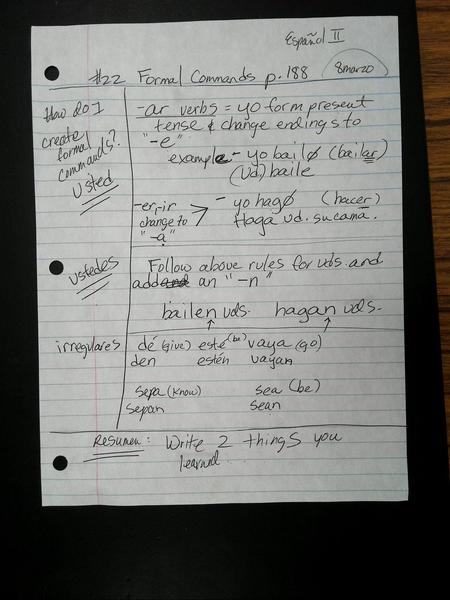 Español II
#22 Formal Commands p.188 8 marzo
How do I
create
formal
commands?
Usted
-ar verbs = yo form present
tense & change endings to
"-e"
example - yo bailo (bailar)
(Ud) baile
-er, -ir - yo hago (hacer)
change to > Haga ud. su cama.
"-a"
ustedes
Follow above rules for uds. and
add an "-n"
bailen uds. hagan uds.
irregulares
dé (give) esté (be) vaya (go)
den estén vayan
sepa (know) sea (be)
sepan sean
Resumen: Write 2 things you
learned.